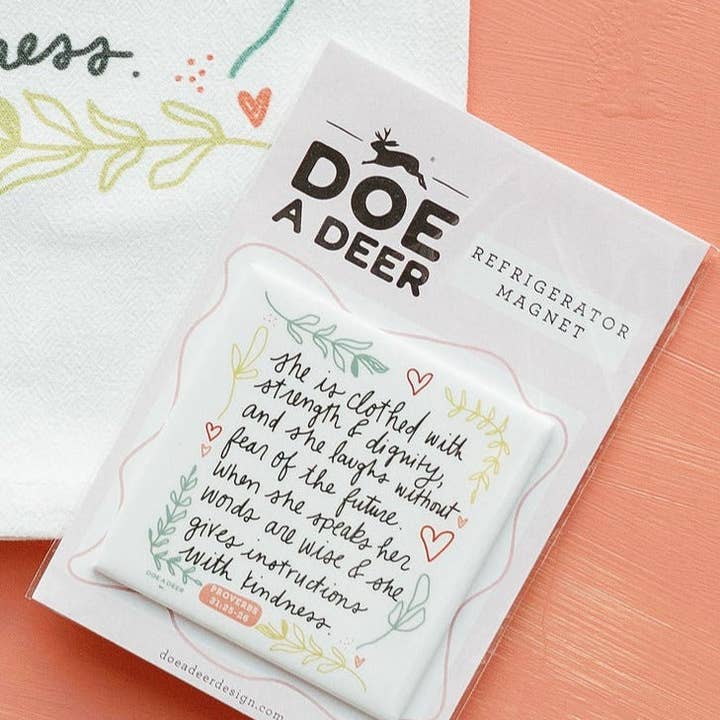 ness.
DOE
A DEER
REFRIGERATOR
MAGNET
she is clothed with
strength & dignity,
and she laughs without
fear of the future.
when she speaks her
words are wise & she
gives instructions
with kindness.
DOE A DEER
PROVERBS
31:25-26
doeadeerdesign.com